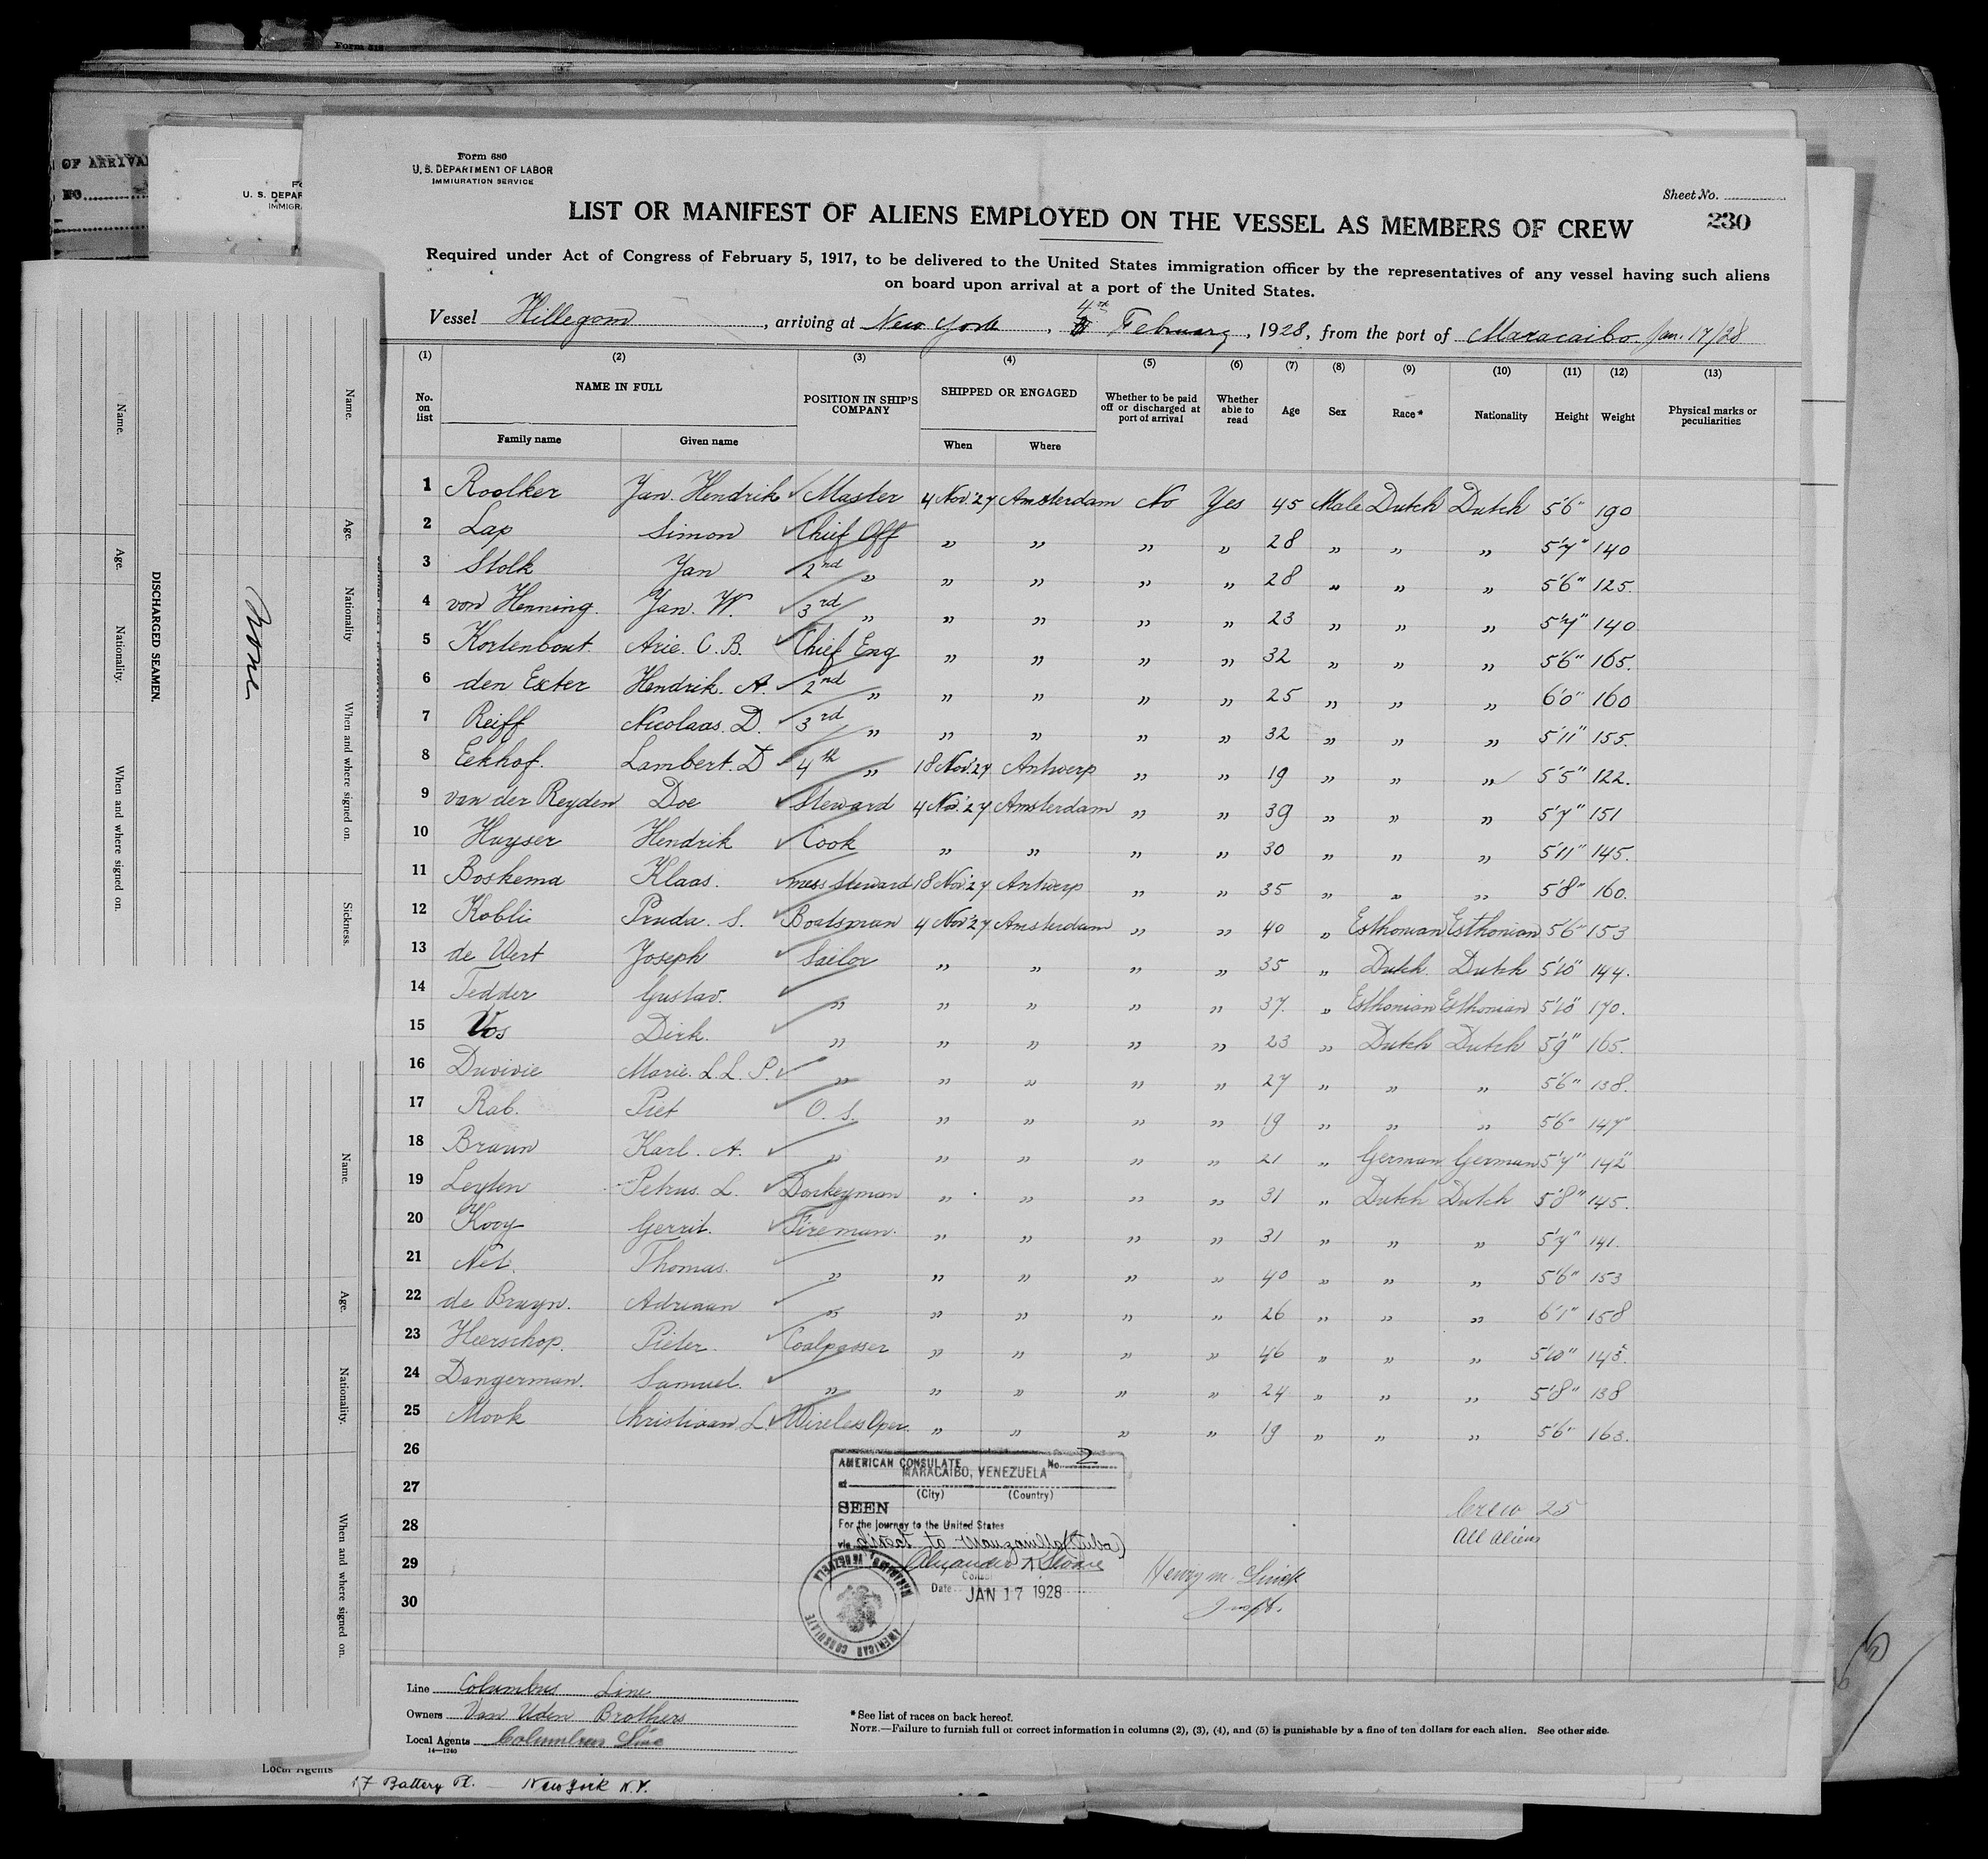 Form 680
U. S. DEPARTMENT OF LABOR
IMMIGRATION SERVICE
Sheet No.
230
LIST OR MANIFEST OF ALIENS EMPLOYED ON THE VESSEL AS MEMBERS OF CREW
Required under Act of Congress of February 5, 1917, to be delivered to the United States immigration officer by the representatives of any vessel having such aliens
on board upon arrival at a port of the United States.
Vessel Hillegom, arriving at New York, 4th February, 1928, from the port of Maracaibo Jan. 17/28
(1) (2) (3) (4) (5) (6) (7) (8) (9) (10) (11) (12) (13)
No. on list NAME IN FULL POSITION IN SHIP'S COMPANY SHIPPED OR ENGAGED Whether to be paid off or discharged at port of arrival Whether able to read Age Sex Race* Nationality Height Weight Physical marks or peculiarities
Family name Given name When Where
1 Roolker Jan. Hendrik Master 4 Nov. 27 Amsterdam No Yes 45 Male Dutch Dutch 5'6" 190
2 Lap Simon Chief Off " " " " 28 " " " 5'7" 140
3 Stolk Jan 2nd " " " " " 28 " " " 5'6" 125.
4 von Henning Jan. W. 3rd " " " " " 23 " " " 5'7" 140
5 Kortenbout Arie. C. B. Chief Eng " " " " 32 " " " 5'6" 165.
6 den Exter Hendrik. A. 2nd " " " " " 25 " " " 6'0" 160
7 Reiff Nicolaas. D. 3rd " " " " " 32 " " " 5'11" 155.
8 Eekhof. Lambert. D 4th " 18 Nov. 27 Antwerp " " 19 " " " 5'5" 122.
9 van der Reyden Doe Steward 4 Nov. 27 Amsterdam " " 39 " " " 5'7" 151
10 Huyser Hendrik Cook " " " " 30 " " " 5'11" 145.
11 Boskema Klaas. mess steward 18 Nov. 27 Antwerp " " 35 " " " 5'8" 160.
12 Koblie Pruda. S. Boatsman 4 Nov. 27 Amsterdam " " 40 " Esthonian Esthonian 5'6" 153
13 de Wert Joseph Sailor " " " " 35 " Dutch. Dutch 5'10" 144.
14 Tedder Gustav. " " " " " 37. " Esthonian Esthonian 5'10" 170.
15 Vos Dirk. " " " " " 23 " Dutch Dutch 5'9" 165.
16 Duvivie Marie. L. L. P. " " " " " 27 " " " 5'6" 138.
17 Rab. Piet O. S. " " " " 19 " " " 5'6" 147
18 Braun Karl. A. " " " " " 21 " German German 5'7" 142
19 Leyten Petrus. L. Donkeyman " " " " 31 " Dutch Dutch 5'8" 145.
20 Kooy Gerrit. Fireman. " " " " 31 " " " 5'7" 141.
21 Net. Thomas. " " " " " 40 " " " 5'6" 153
22 de Bruyn. Adriaan " " " " " 26 " " " 6'1" 158
23 Heerschop. Pieter. Coalpasser " " " " 46 " " " 5'10" 143.
24 Dangerman. Samuel. " " " " " 24 " " " 5'8" 138
25 Mook Christiaan L. Wireless Oper. " " " " 19 " " " 5'6" 163.
26
27
28
29
30
AMERICAN CONSULATE No. 2
at MARACAIBO, VENEZUELA
(City) (Country)
SEEN
For the journey to the United States
via direct to Manzanillo (Cuba)
Alexander K Sloan
Consul
Date JAN 17 1928
MARACAIBO, VENEZUELA
AMERICAN CONSULATE
Crew 25
All aliens
Henry M.
Insp.
Line Columbus Line
Owners Van Uden Brothers
Local Agents Columbus Line
14—1240
*See list of races on back hereof.
NOTE.—Failure to furnish full or correct information in columns (2), (3), (4), and (5) is punishable by a fine of ten dollars for each alien. See other side.
Local Agents
17 Battery Pl. — New York N.Y.
Form
OF ARRIVAL
NO
U. S. DEPAR
IMMIGRA
DISCHARGED SEAMEN.
Name. Age. Nationality. When and where signed on.
Name. Age. Nationality When and where signed on. Sickness.
None
Name. Age. Nationality. When and where signed on.